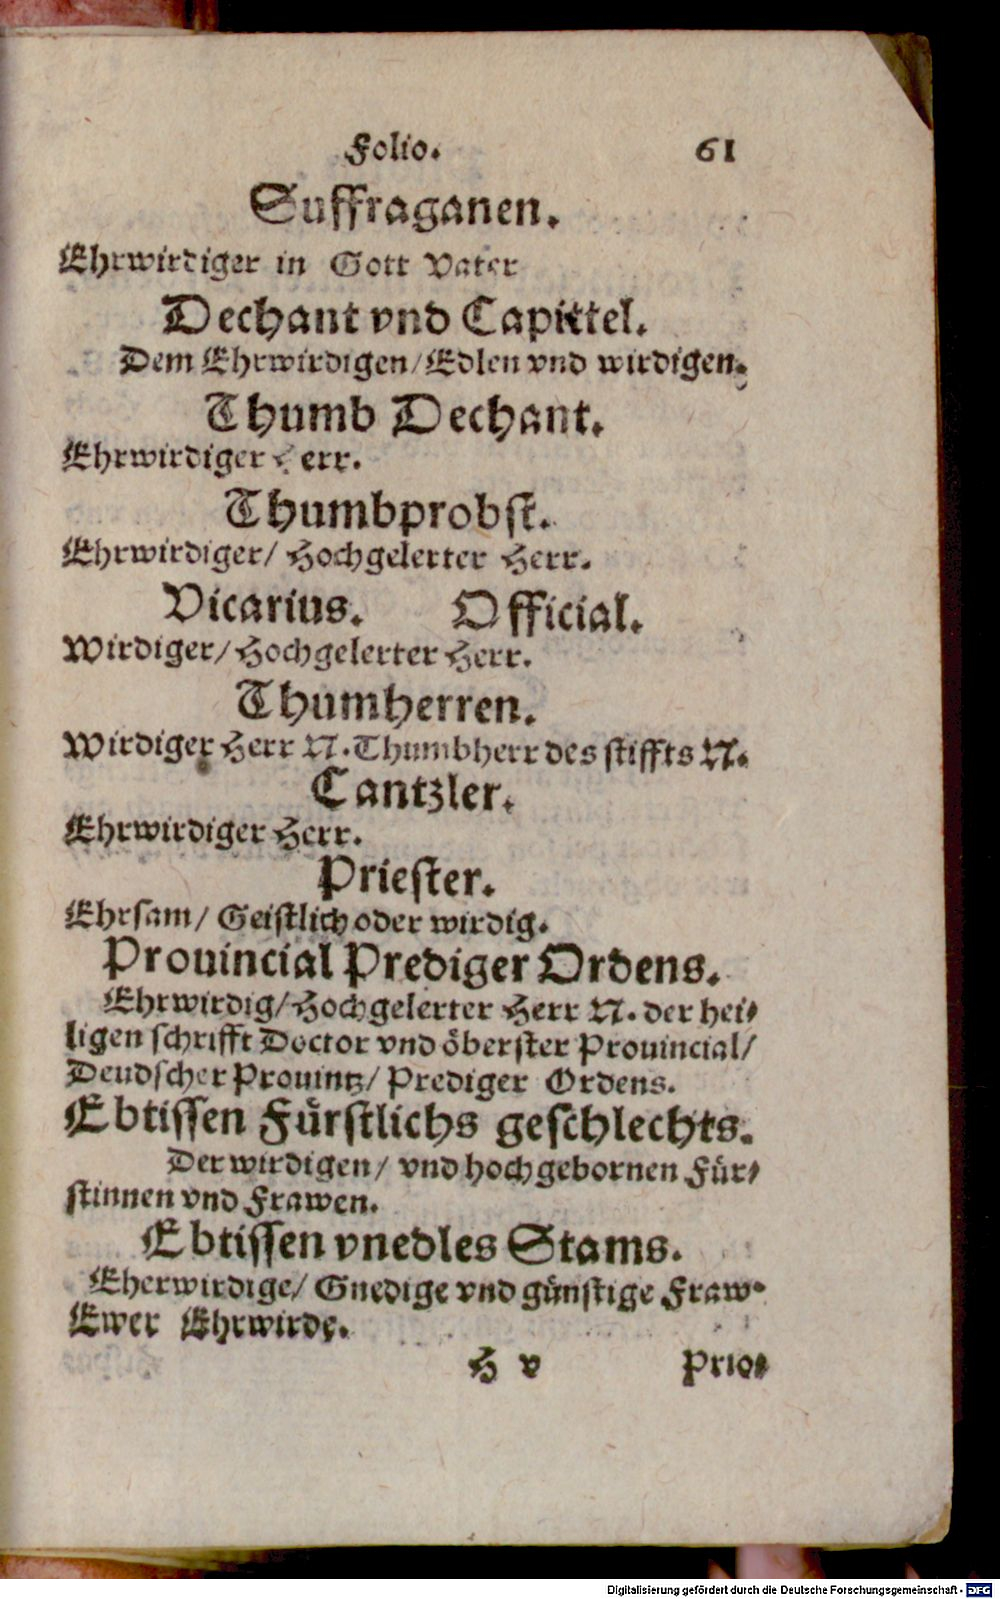 Folio. 61
Suffraganen.
Ehrwirdiger in Gott Vater
Dechant vnd Capittel.
Dem Ehrwirdigen/Edlen vnd wirdigen.
Thumb Dechant.
Ehrwirdiger Herr.
Thumbprobst.
Ehrwirdiger/ Hochgelerter Herr.
Vicarius. Official.
Wirdiger/Hochgelerter Herr.
Thumherren.
Wirdiger Herr N. Thumbherr des stiffts N.
Cantzler.
Ehrwirdiger Herr.
Priester.
Ehrsam/ Geistlich oder wirdig.
Prouincial Prediger Ordens.
Ehrwirdig/Hochgelerter Herr N. der hei⸗
ligen schrifft Doctor vnd öberster Prouincial/
Deudscher Prouintz/ Prediger Ordens.
Ebtissen Fürstlichs geschlechts.
Der wirdigen/ vnd hochgebornen Für⸗
stinnen vnd Frawen.
Ebtissen vnedles Stams.
Eherwirdige/ Gnedige vnd günstige Fraw.
Ewer Ehrwirde.
H v Prio⸗
Digitalisierung gefördert durch die Deutsche Forschungsgemeinschaft - DFG